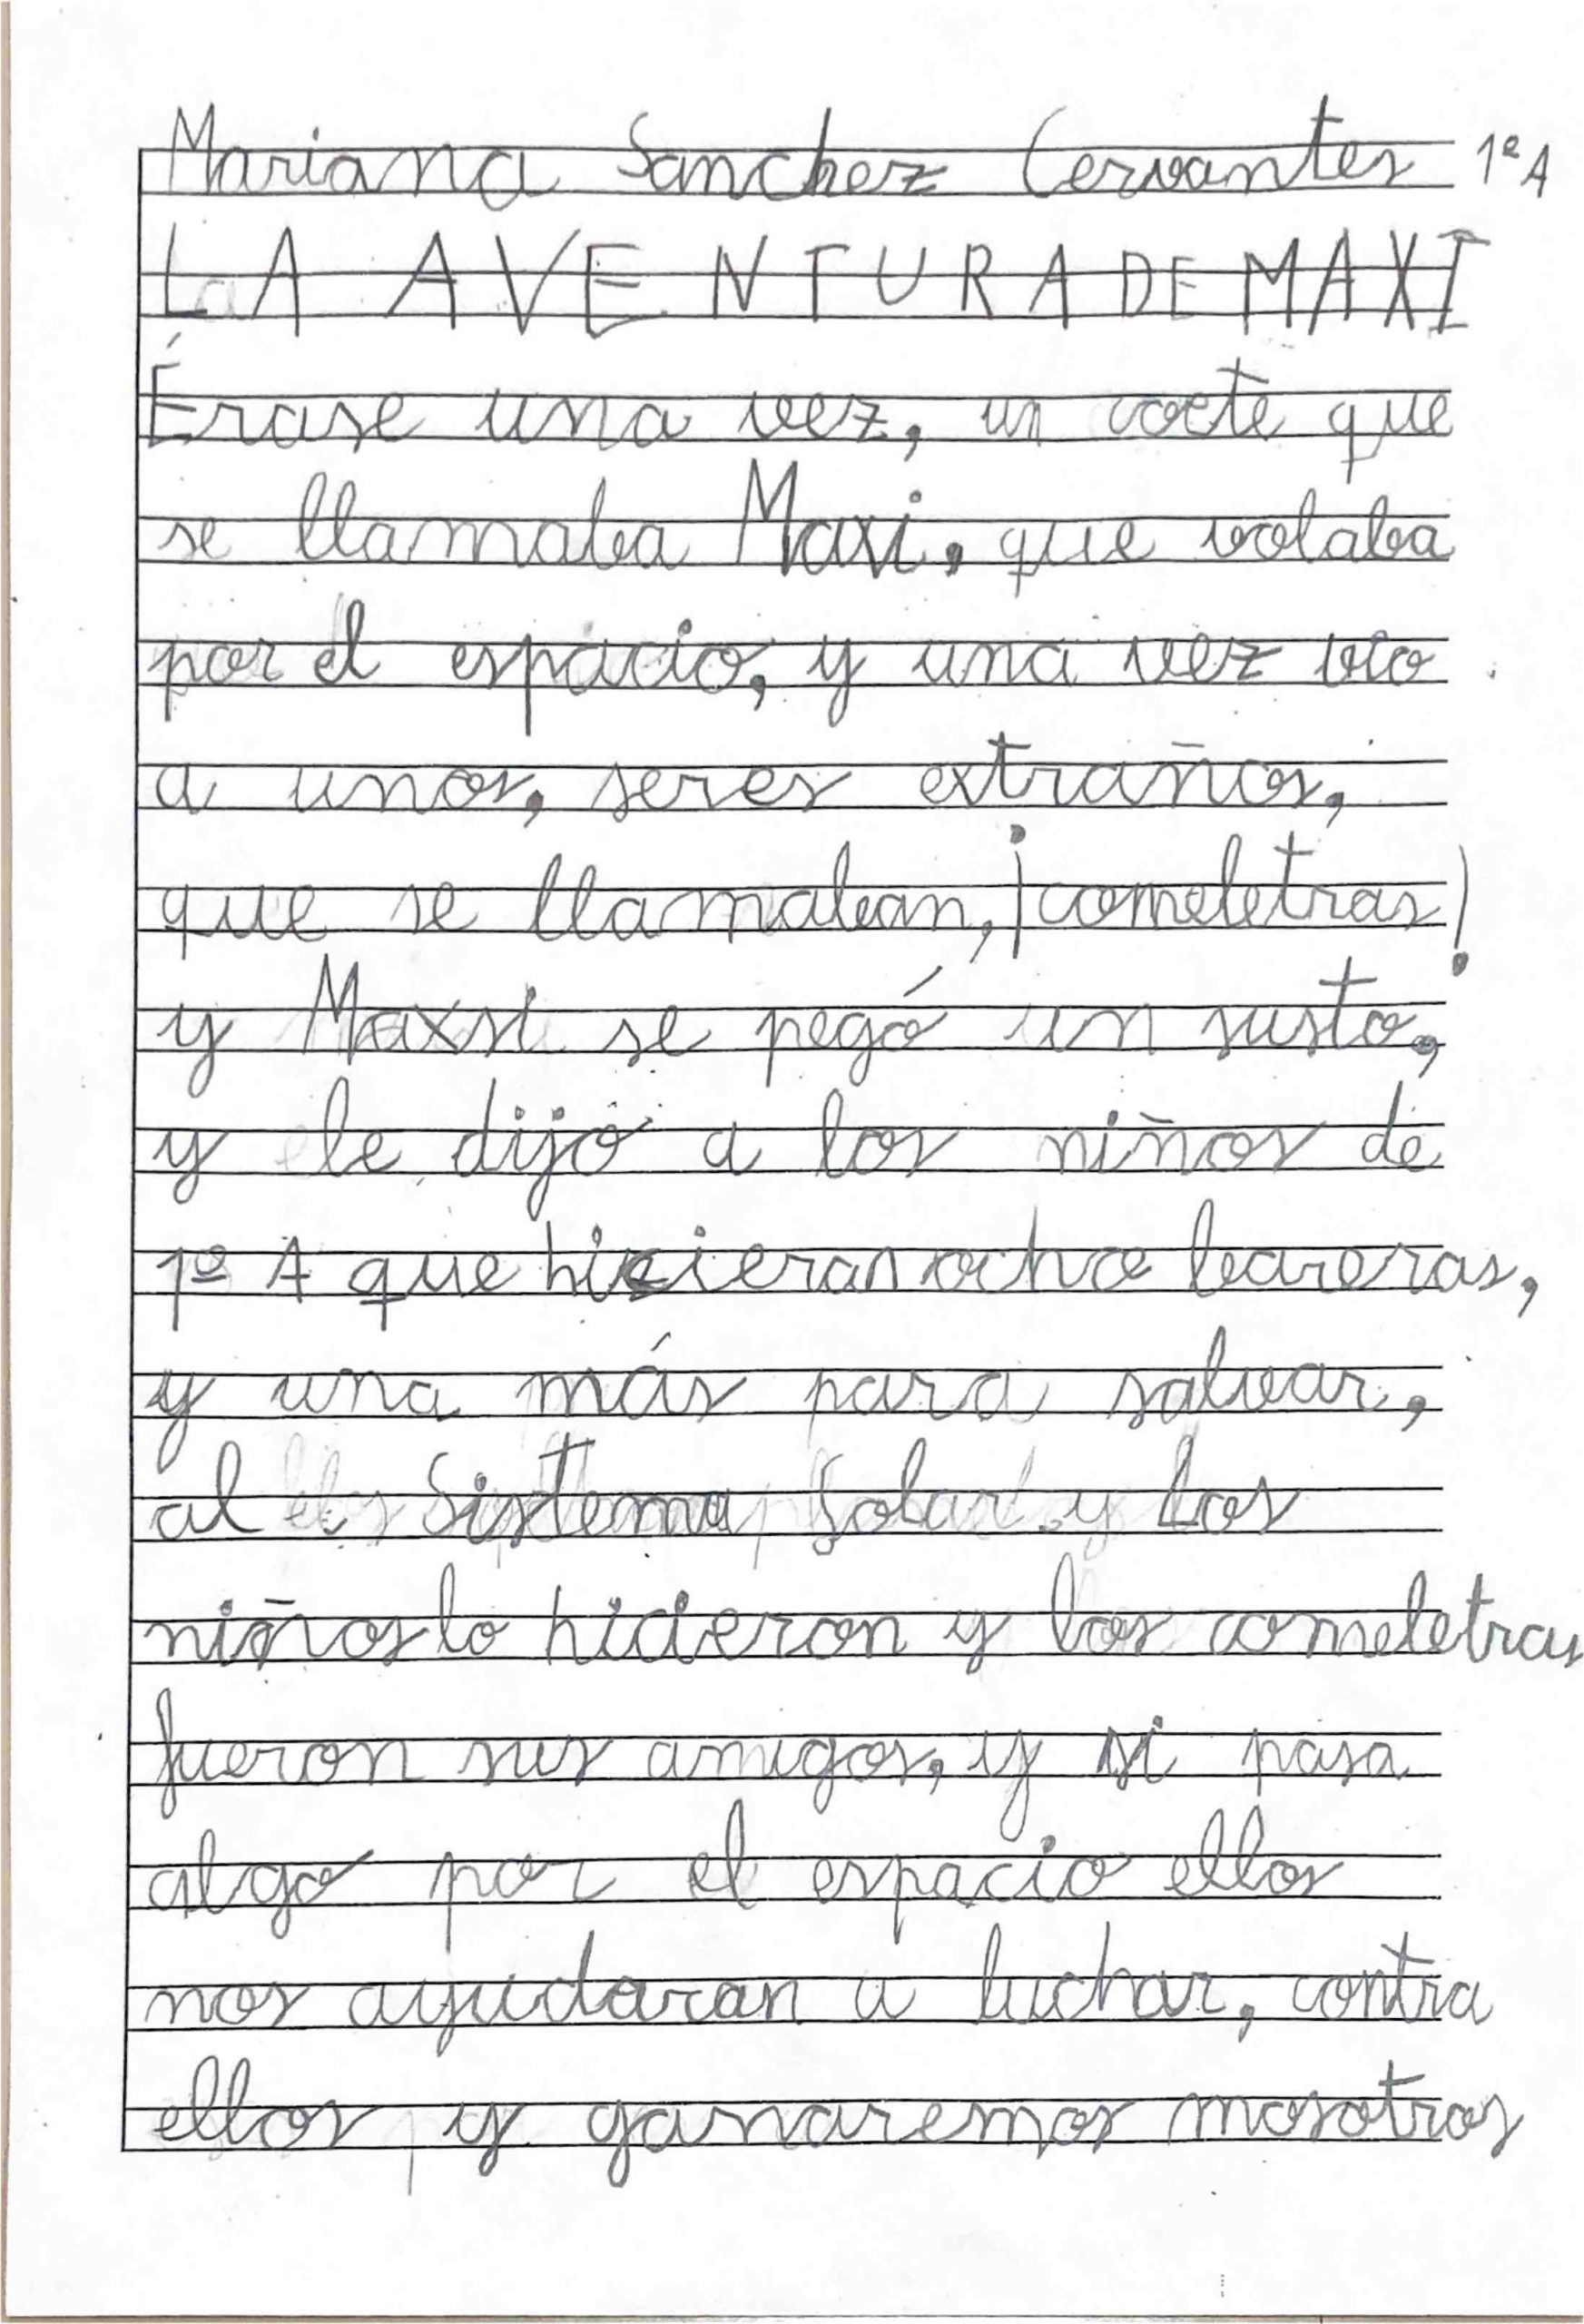 Mariana Sanchez Cervantes 1º A
LA AVENTURA DE MAXI
Érase una vez, un coete que
se llamaba Maxi, que volaba
por el espacio, y una vez vio
a unos, seres extraños,
que se llamaban, ¡cometetras!
y Maxsi se pegó un susto,
y le dijo a los niños de
1º A que hicieran ocho bareras,
y una más para salvar,
al Sistema Solar. y Los
niños lo hicieron y los comeletras
fueron sus amigos, y si pasa
algo por el espacio ellos
nos ayudaran a luchar, contra
ellos y ganaremos mosotros